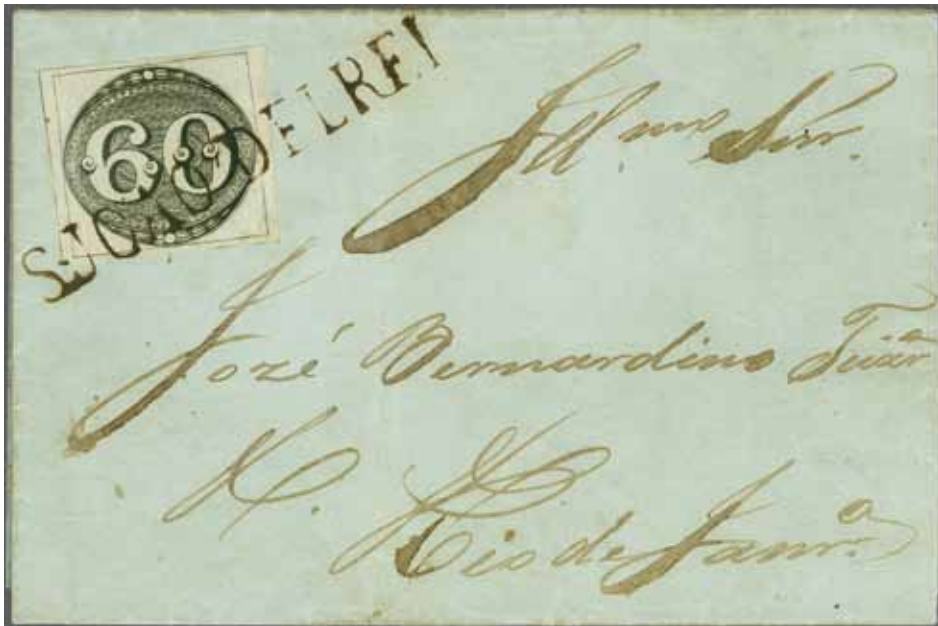 60
S. JOAO DELREI
Illmo Snr.
José Bernardino
Rio de Janro.